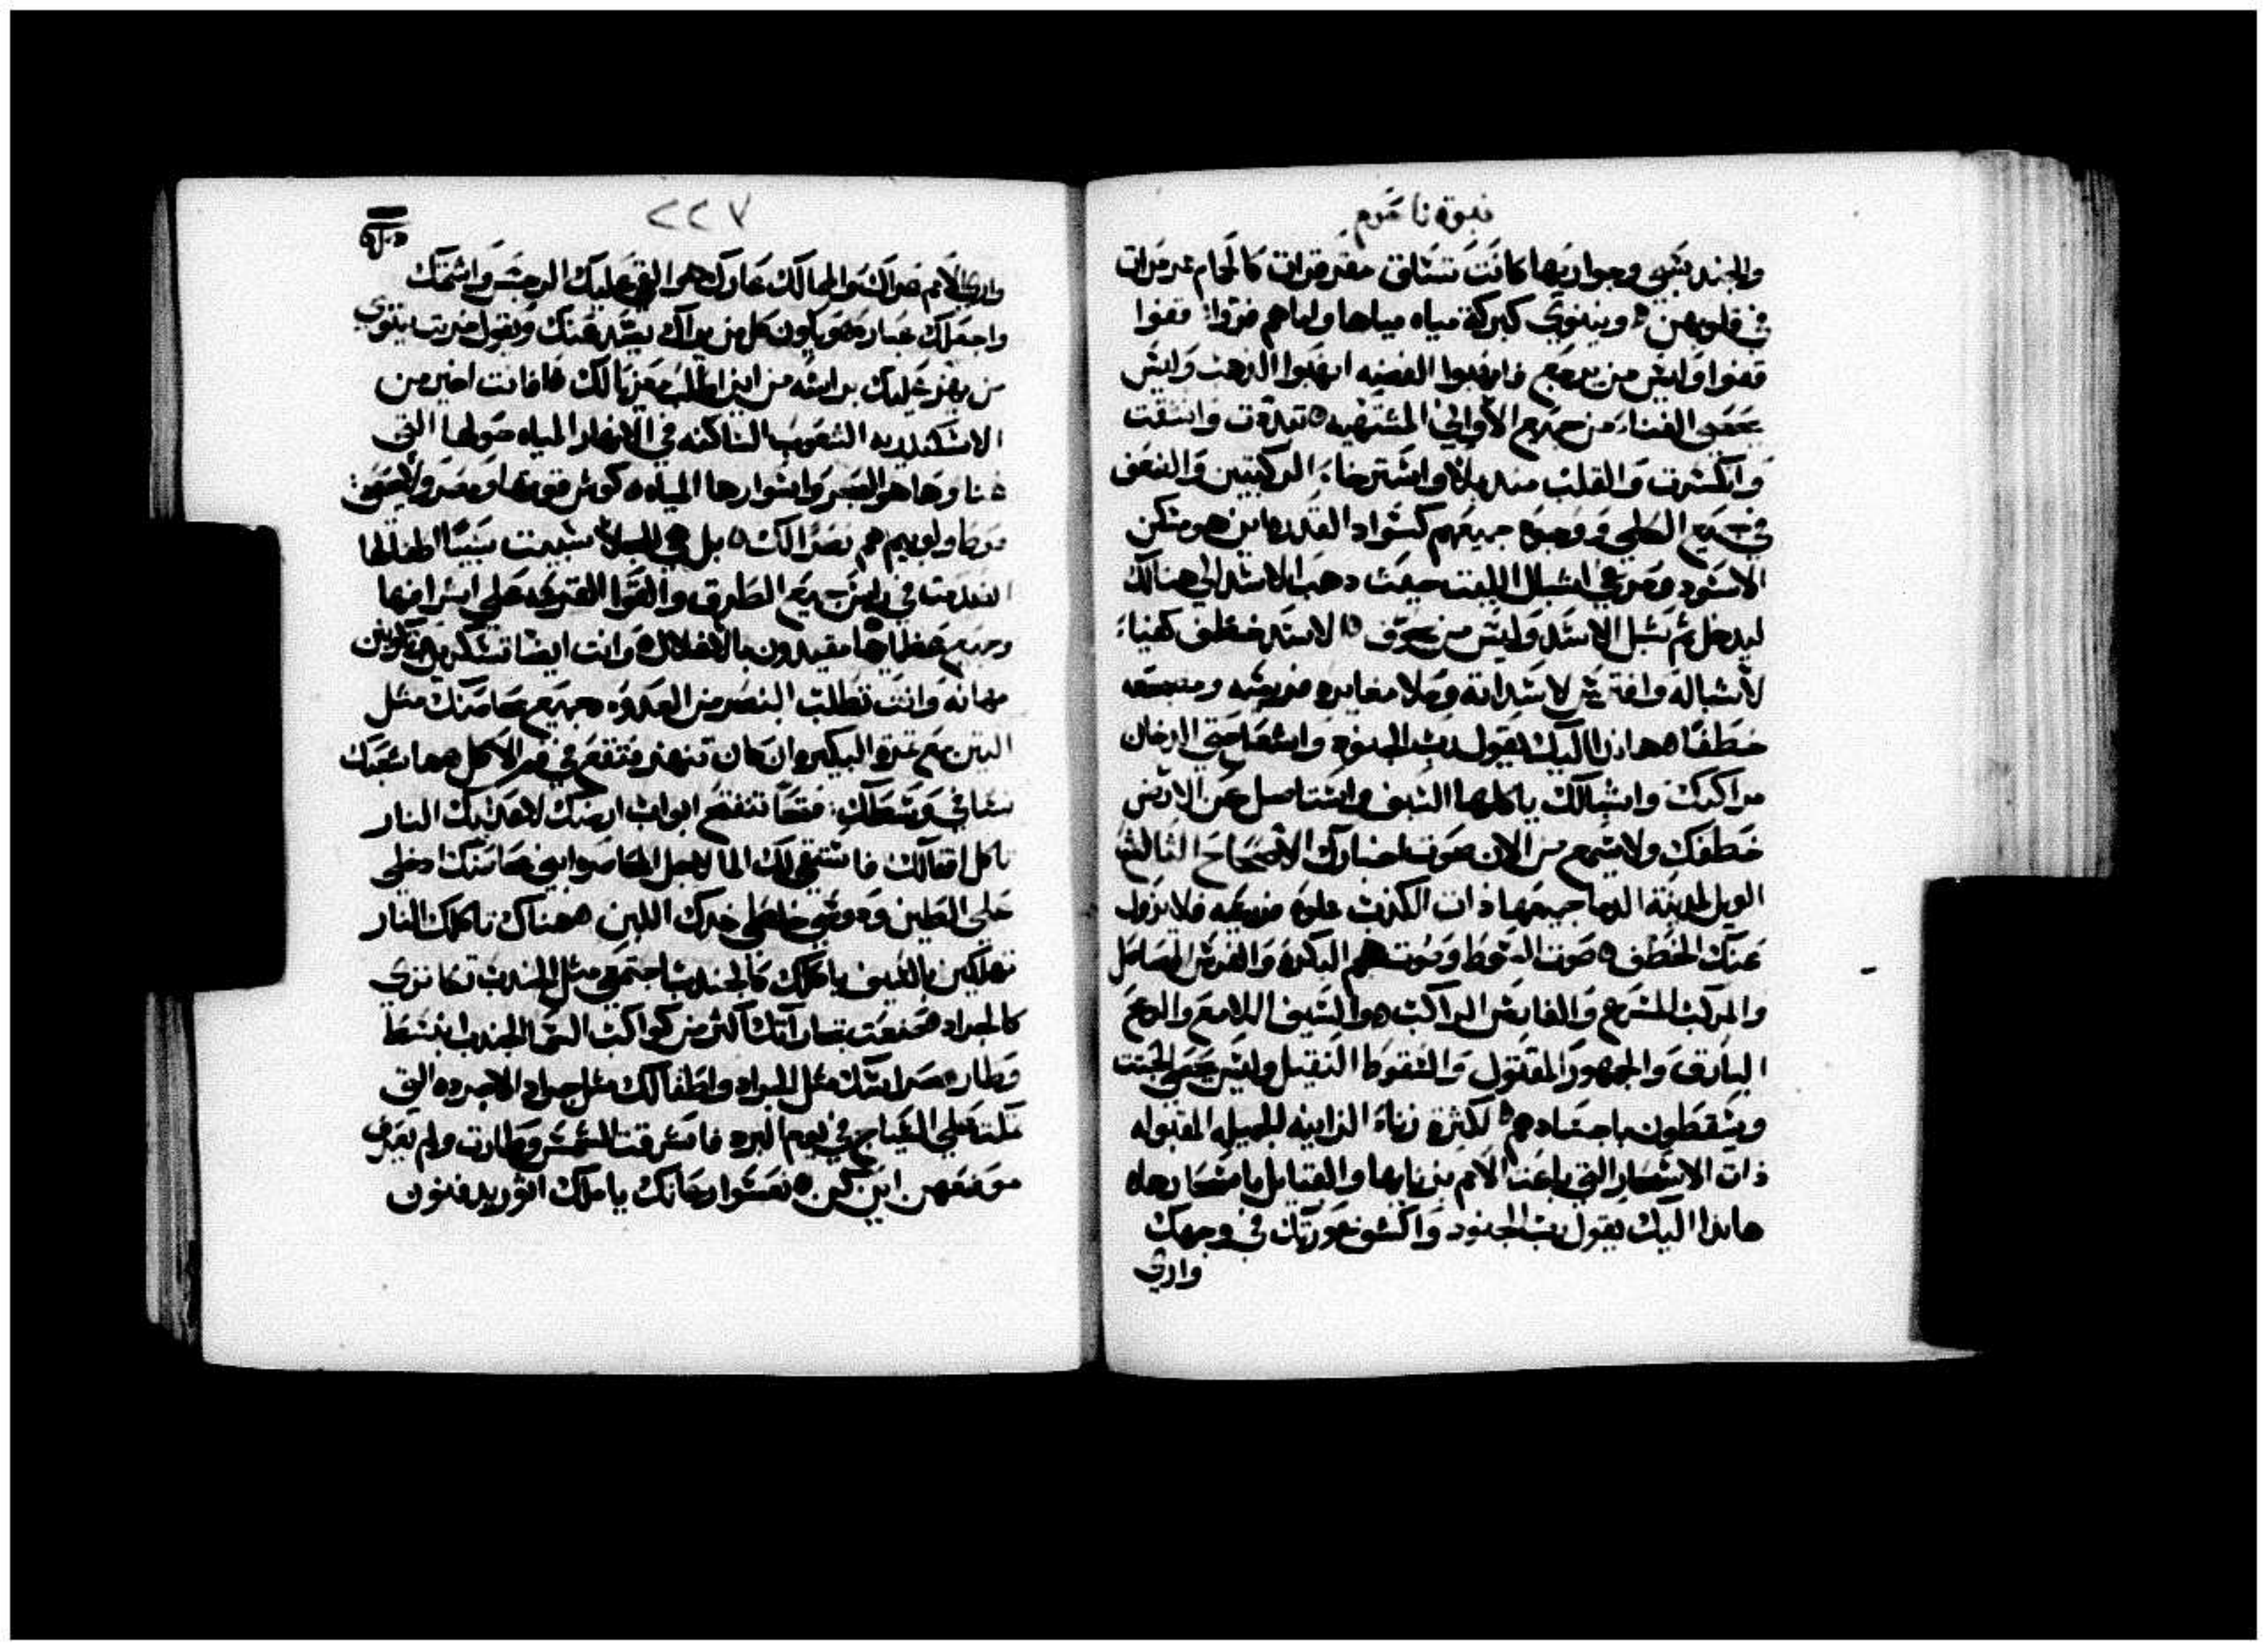 نبوة ناحوم
والجند سُبي وجواريها كانت تستاق مقرقرات كالحمام مدمرات
في قلوبهن ونينوي كبركة مياه مياها واما هم فرّوا قفوا
قفوا وليس من يرجع فانهبوا الفضه انهبوا الذهب وليس
يحصى الغناء من جميع الأواني المشتهيه تبددت وانشقت
وانكسرت والقلب منديلا واسترخاء الركبتين والضعف
في جميع الكلي ووجوه جميعهم كسواد القدر اين هو مسكن
الاسود ومرعي اشبال الليث حيث ذهب الاسد الي هنالك
ليدخل ثم شبل الاسد وليس من يخوّف الاسد خطف كفاء
لأشباله وافترس لاسداته وملا مغايره فريسه ومنجعه
خطفا هااندا اليك يقول رب الجنود واشعل حتى الدخان
مراكبك واشبالك ياكلها السيف واستاصل من الارض
خطفك ولا يسمع من الان صوت اخبارك الأصحاح الثالث
الويل لمدينة الدما جميعها ذات الكذب مملوه مزيعه فلا يزول
عنك الخطف صوت السوط وصوت هم البكرة والفرس الصاهل
والمركب المسرع والفارس الراكب هوا السيف اللامع والرمح
البارق والجمهور المقتول والسقوط الثقيل وليس يحصى الجثث
ويسقطون باجسادهم لكثرة زناء الزانيه الجميله المقبوله
ذات الاسحار التي باعت الامم بزناها والقبايل باسحارها
هااندا اليك يقول رب الجنود واكشف عورتك في وجهك
واري
٢٢٧
واري الأمم عراك والممالك عارك هوا القي عليك الرجس واشتمك
واجعلك عباره ويكون كل من يراك يبتعد عنك ويقول خربت نينوي
من يهز عليك براسه من اين اطلب معزيا لك فانت اخير من
الاسكندريه الشعوب الساكنه في الانهار المياه حولها التي
غناوها هو البحر واسوارها المياه كوش قوتها ومصر ولا يحصى
فوط ولوبيم هم نصرا لك بل هي للجلا سبيت سبيًا اطفالها
انقدمتا في راس جميع الطرق والقوا القرعه علي اشرافها
وجميع عظماها مقيدون بالاغلال وانت ايضا تسكرين وتكونين
مهانه وانت تطلب النصر من العدو جميع محاصنك مثل
التين مع ثمرة البكير وان كان تنهز فتقع في فم الاكل هما شعبك
نسا في وسطك فتحًا تنفتح ابواب ارضك لاعدايك النار
تاكل اقفالك فاستقي لك الما لاجل الحصار وابني محاصنك ادخلي
على الطين ودوسي خلطي خدك اللبن هناك تاكلك النار
تهلكين بالسيف ياكلك كالجندب اجتمعي مثل الجندب تكاثري
كالجراد صنعت تجاراتك اكثر من كواكب السما الجندب انبسط
وطار حراسك مثل الجراد واطفالك مثل جراد الاجرده التي
تحل علي السياج في يوم البرد فاشرقت الشمس وطارت ولم يعرف
موضعهن اين كن نعسوا رعاتك يا ملك اثور يدفنون